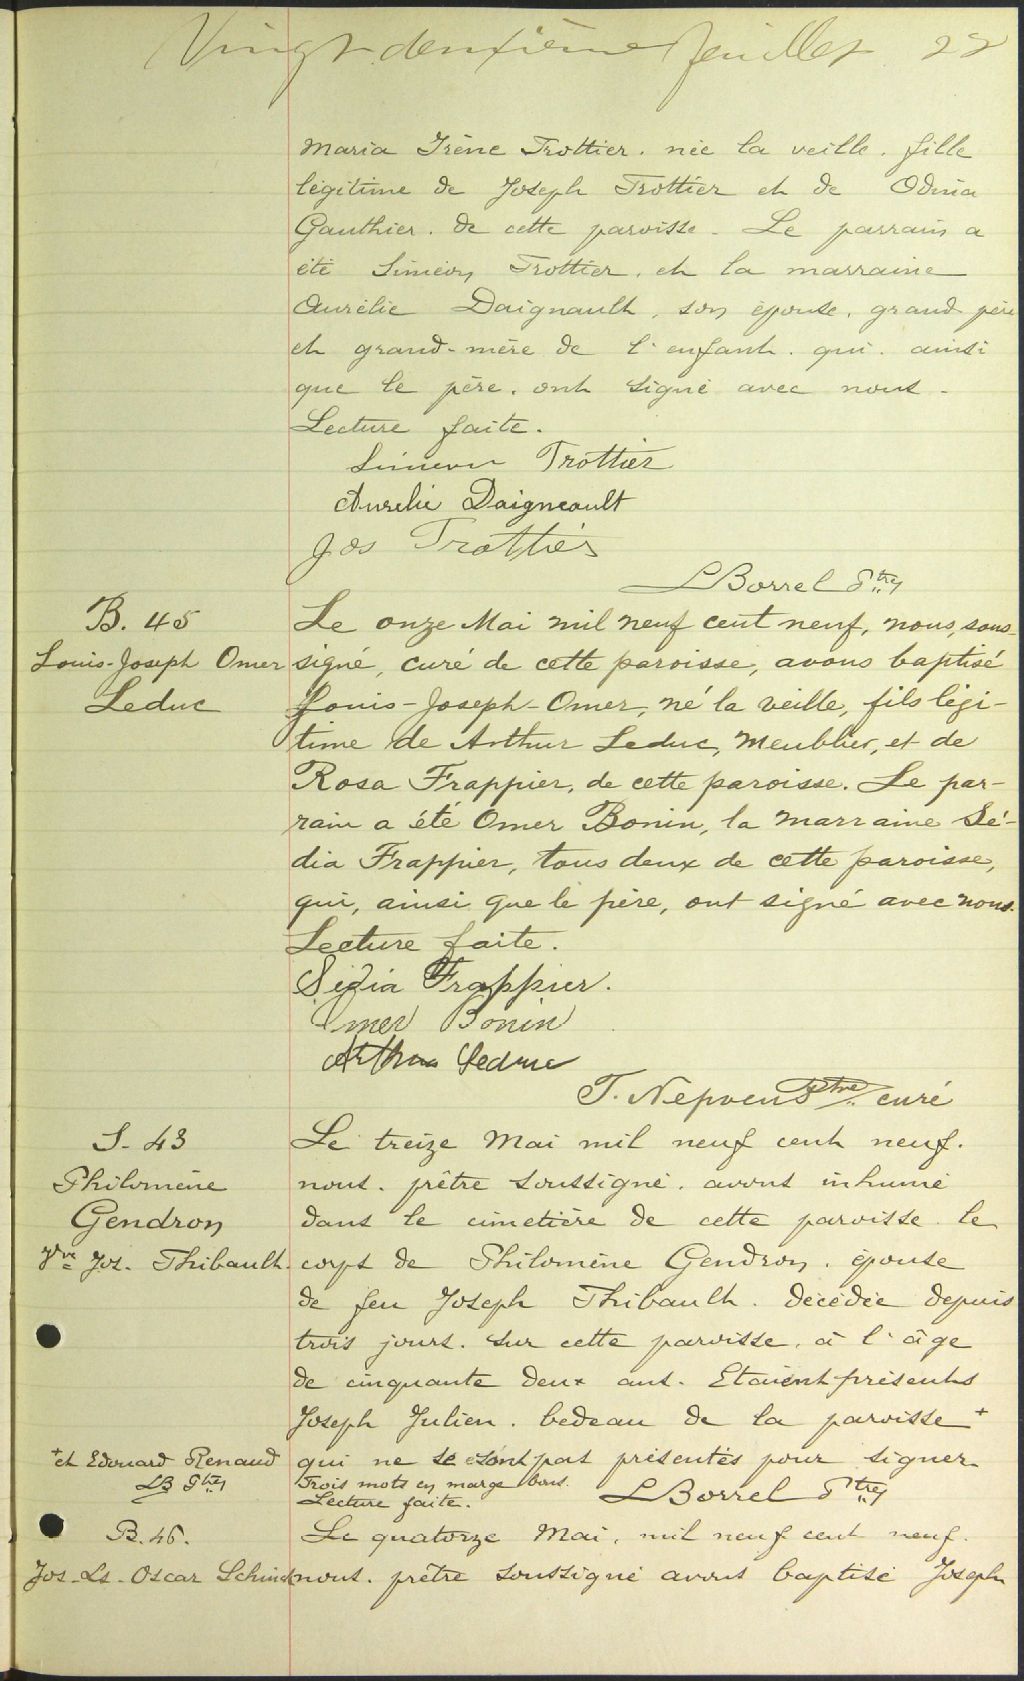 Vingt-deuxième feuillet 22
Maria Irène Trottier. née la veille. fille
légitime de Joseph Trottier et de Odina
Gauthier. de cette paroisse. Le parrain a
été Siméon Trottier. et la marraine
Aurélie Daignault, son épouse, grand-père
et grand-mère de l'enfant. qui. ainsi
que le père. ont signé avec nous.
Lecture faite.
Simeon Trottier
Aurelie Daigneault
Jos Trottier
L Borrel Ptre
B. 45
Louis-Joseph Omer
Leduc
Le onze Mai mil neuf cent neuf, nous, sous-
signé, curé de cette paroisse, avons baptisé
Louis-Joseph-Omer, né la veille, fils légi-
time de Arthur Leduc, Meublier, et de
Rosa Frappier, de cette paroisse. Le par-
rain a été Omer Bonin, la marraine Sé-
dia Frappier, tous deux de cette paroisse,
qui, ainsi que le père, ont signé avec nous.
Lecture faite.
Sédia Frappier.
Omer Bonin
Arthur Leduc
T. Nepveu Ptre curé
S. 43
Philomène
Gendron
Vve Jos. Thibault.
Le treize Mai mil neuf cent neuf.
nous. prêtre soussigné. avons inhumé
dans le cimetière de cette paroisse le
corps de Philomène Gendron. épouse
de feu Joseph Thibault. décédée depuis
trois jours. sur cette paroisse. à l'âge
de cinquante deux ans. Etaient présents
Joseph Julien. bedeau de la paroisse +
+ et Edouard Renaud
LB Ptre
qui ne se sont pas présentés pour signer.
Trois mots en marge bons.
Lecture faite.
L Borrel Ptre
B. 46.
Jos-Ls-Oscar Schinck
Le quatorze Mai, mil neuf cent neuf.
nous. prêtre soussigné avons baptisé Joseph